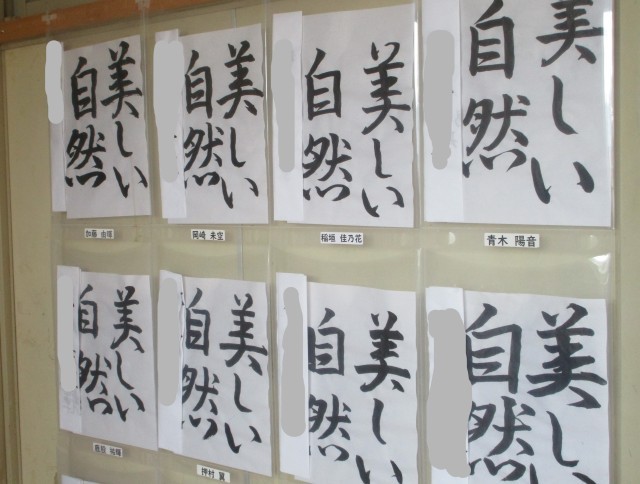 美しい
自然
美しい
自然
美しい
自然
美しい
自然
岡崎 未空
稲垣 佳乃花
青木 陽音
美しい
自然
美しい
自然
美しい
自然
美しい
自然
押村 翼